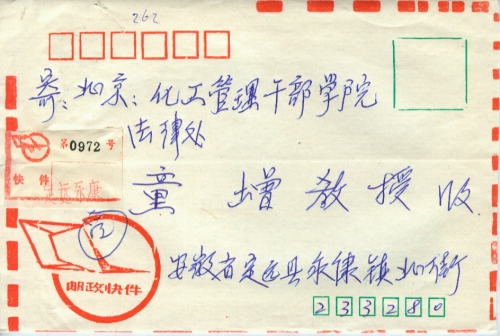 262
寄：北京：化工管理干部学院
法律处
第0972号
快件
定远永康
童增教授收
邮政快件
安徽省定远县永康镇北街
233280